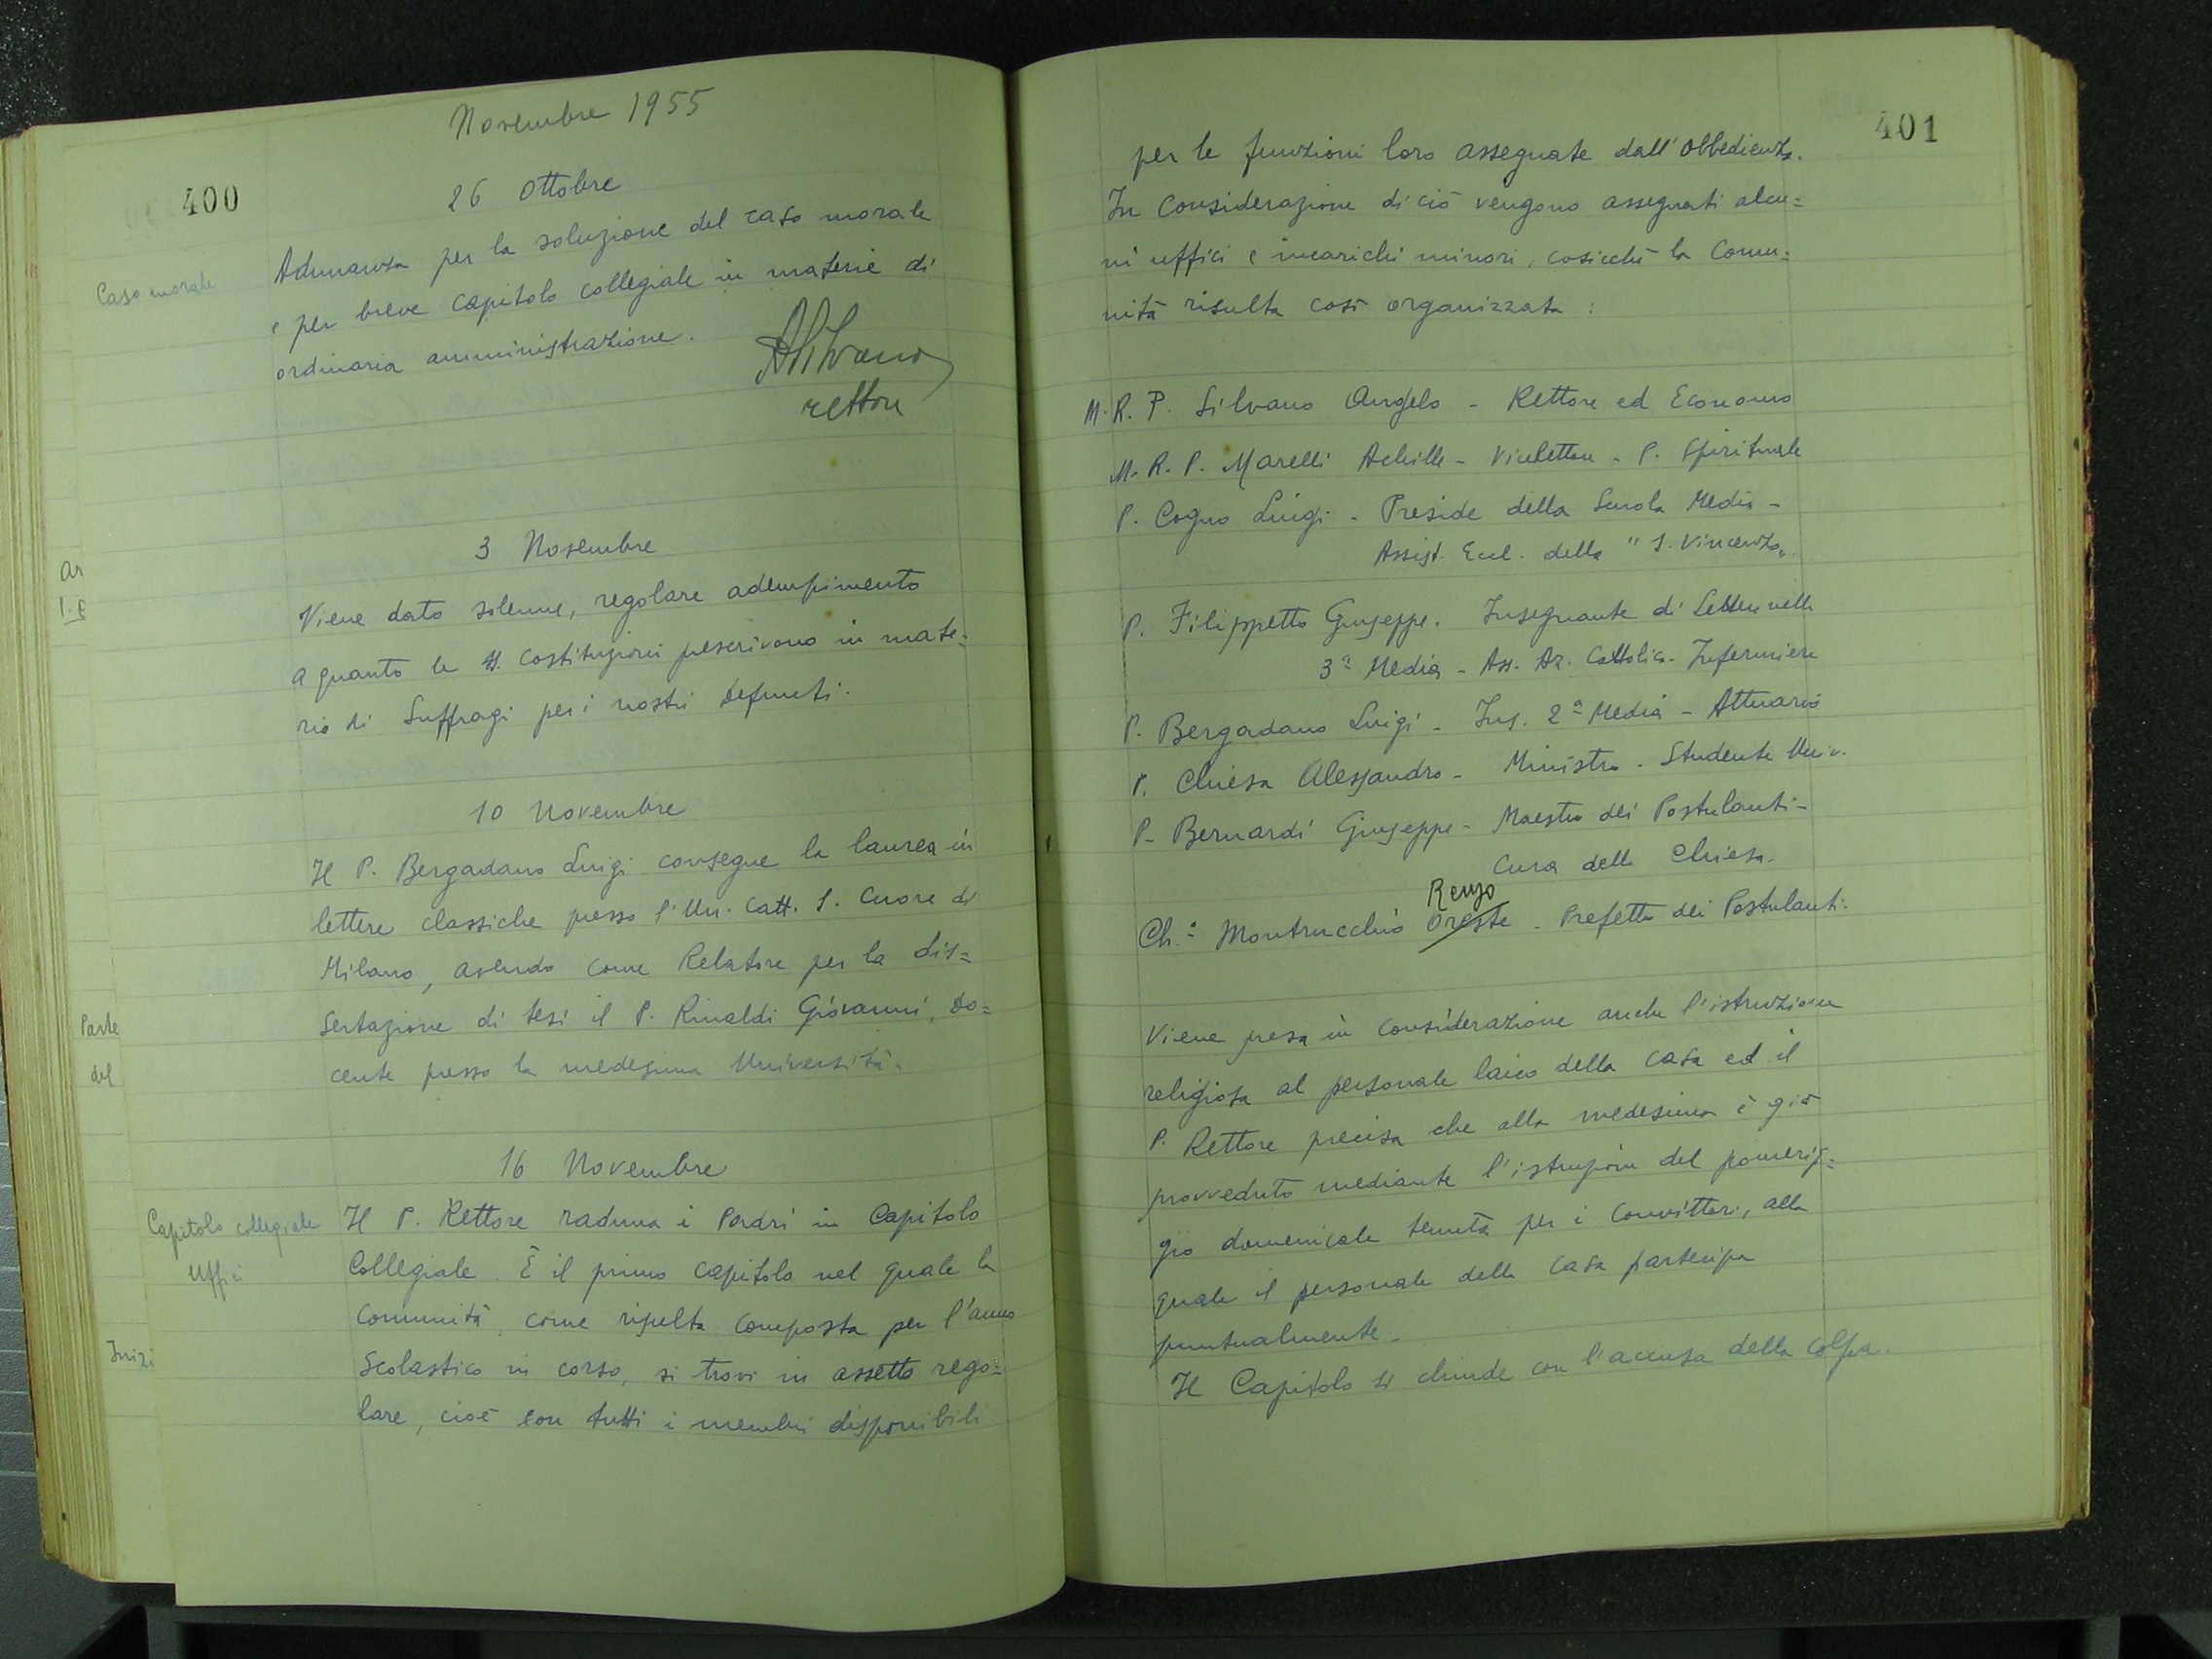 Novembre 1955
400
26 Ottobre
Caso morale
Adunanza per la soluzione del caso morale
e per breve capitolo collegiale in materie di
ordinaria amministrazione.
ASilvano
rettore
3 Novembre
Viene dato solenne, regolare adempimento
a quanto le SS. Costituzioni prescrivono in mate=
ria di Suffragi per i nostri Defunti.
10 Novembre
Il P. Bergadano Luigi consegue la laurea in
lettere classiche presso l'Un. Catt. S. Cuore di
Milano, avendo come Relatore per la dis=
sertazione di tesi il P. Rinaldi Giovanni, Do=
cente presso la medesima Università.
16 Novembre
Capitolo collegiale
Uffici
Il P. Rettore raduna i Padri in Capitolo
Collegiale. È il primo capitolo nel quale la
Comunità, come risulta composta per l'anno
Scolastico in corso, si trovi in assetto rego=
lare, cioè con tutti i membri disponibili
Ar
Parte
del
Inizi
401
per le funzioni loro assegnate dall'Obbedienza.
In considerazione di ciò vengono assegnati alcu=
ni uffici e incarichi minori, cosicché la Comu=
nità risulta così organizzata:
M. R. P. Silvano Angelo - Rettore ed Economo
M. R. P. Marelli Achille - ViceRettore - P. Spirituale
P. Cogno Luigi - Preside della Scuola Media -
Assist. Eccl. della "S. Vincenzo".
P. Filippetto Giuseppe. Insegnante di Lettere nella
3ª Media - Ass. Az. Cattolica. Infermiere
P. Bergadano Luigi - Ins. 2ª Media - Attuario
P. Chiesa Alessandro - Ministro - Studente Univ.
P. Bernardi Giuseppe - Maestro dei Postulanti -
Cura della Chiesa.
Renzo
Ch.º Montrucchio Oreste - Prefetto dei Postulanti.
Viene presa in considerazione anche l'istruzione
religiosa al personale laico della casa ed il
P. Rettore precisa che alla medesima è già
provveduto mediante l'istruzione del pomerig=
gio domenicale tenuta per i Convittori, alla
quale il personale della Casa partecipa
puntualmente.
Il Capitolo si chiude con l'accusa della colpa.